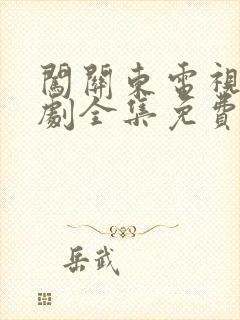 闖關東電視
劇全集免費
岳武